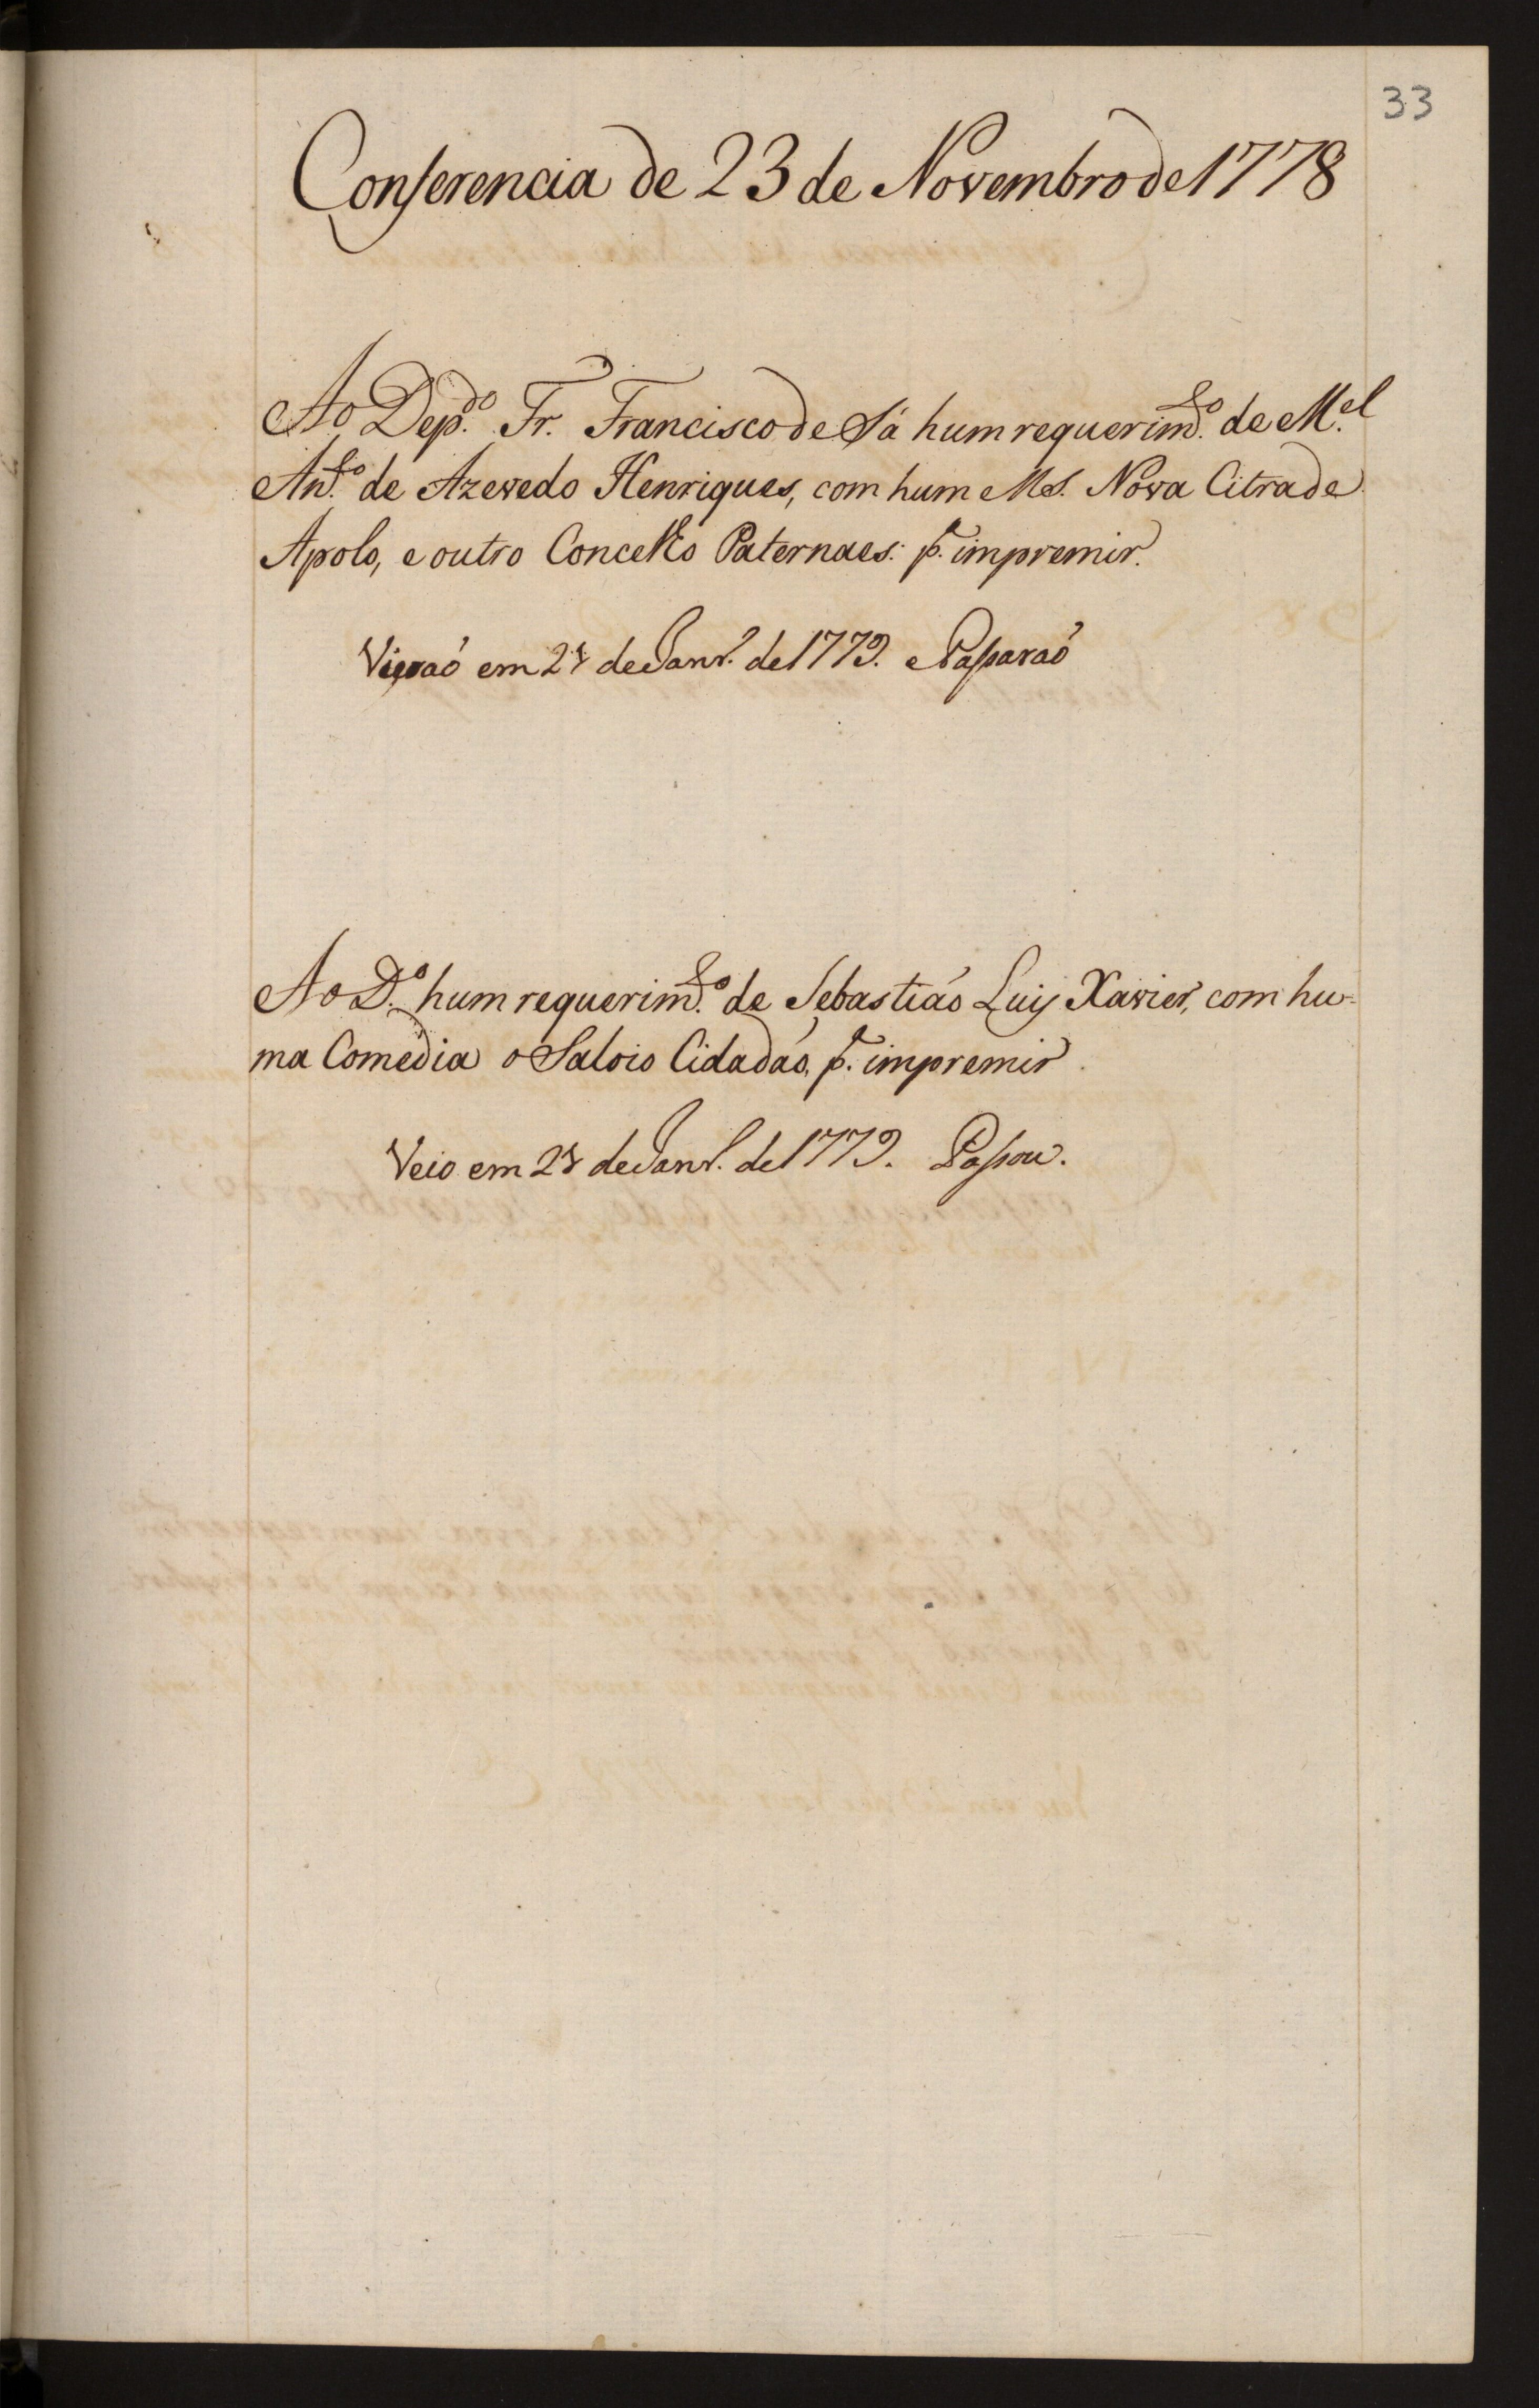 33
Conferencia de 23 de Novembro de 1778
Ao Dep.do Fr. Francisco de Sá hum requerim.to de M.el
Ant.o de Azevedo Henriques, com hum MS. Nova Citra de
Apolo, e outro Concelho Paternaes: p.a impremir.
Vieraó em de Janr.o de 1779. e Passaraó
Ao D.o hum requerim.to de Sebastiaó Luis Xavier, com hu-
ma Comedia o Saloio Cidadaó, p.a impremir
Veio em de Janr.o de 1779. Passou.